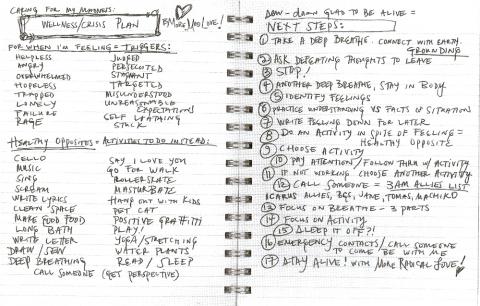 CARING FOR MY MADNESS:
WELLNESS/CRISIS PLAN
(MORE) MAD LOVE!
FOR WHEN I'M FEELING = TRIGGERS:
HELPLESS JUDGED
ANGRY PERSECUTED
OVERWHELMED STAGNANT
HOPELESS TARGETED
TRAPPED MISUNDERSTOOD
LONELY UNREASONABLE EXPECTATIONS
FAILURE SELF LOATHING
RAGE STUCK
HEALTHY OPPOSITES = ACTIVITIES TO DO INSTEAD:
CELLO SAY I LOVE YOU
MUSIC GO FOR WALK
SING ROLLERSKATE
SCREAM MASTURBATE
WRITE LYRICS HANG OUT WITH KIDS
CLEAN SPACE PET CAT
MAKE FOOD FOOD POSITIVE GRAFFITI
LONG BATH PLAY!
WRITE LETTER YOGA/STRETCHING
DRAW/SEW WATER PLANTS
DEEP BREATHING READ/SLEEP
CALL SOMEONE (GET PERSPECTIVE)
DAW-DAWN GLAD TO BE ALIVE =
NEXT STEPS:
① TAKE A DEEP BREATHE. CONNECT WITH EARTH.
GROUNDING
② ASK DEFEATING THOUGHTS TO LEAVE
③ STOP!
④ ANOTHER DEEP BREATHE, STAY IN BODY
⑤ IDENTIFY FEELINGS
⑥ PRACTICE UNDERSTANDING VS FACTS OF SITUATION
⑦ WRITE FEELING DOWN FOR LATER
⑧ DO AN ACTIVITY IN SPITE OF FEELING =
HEALTHY OPPOSITE
⑨ CHOOSE ACTIVITY
⑩ PAY ATTENTION/FOLLOW THRU W/ ACTIVITY
⑪ IF NOT WORKING CHOOSE ANOTHER ACTIVITY
⑫ CALL SOMEONE = 3AM ALLIES LIST
ICARUS ALLIES, JANE, TOMAS, MACHIKO
⑬ FOCUS ON BREATHE - 3 PARTS
⑭ FOCUS ON ACTIVITY
⑮ SLEEP IT OFF?!
⑯ EMERGENCY CONTACTS/CALL SOMEONE
TO COME BE WITH ME
⑰ STAY ALIVE! WITH MORE RADICAL LOVE!